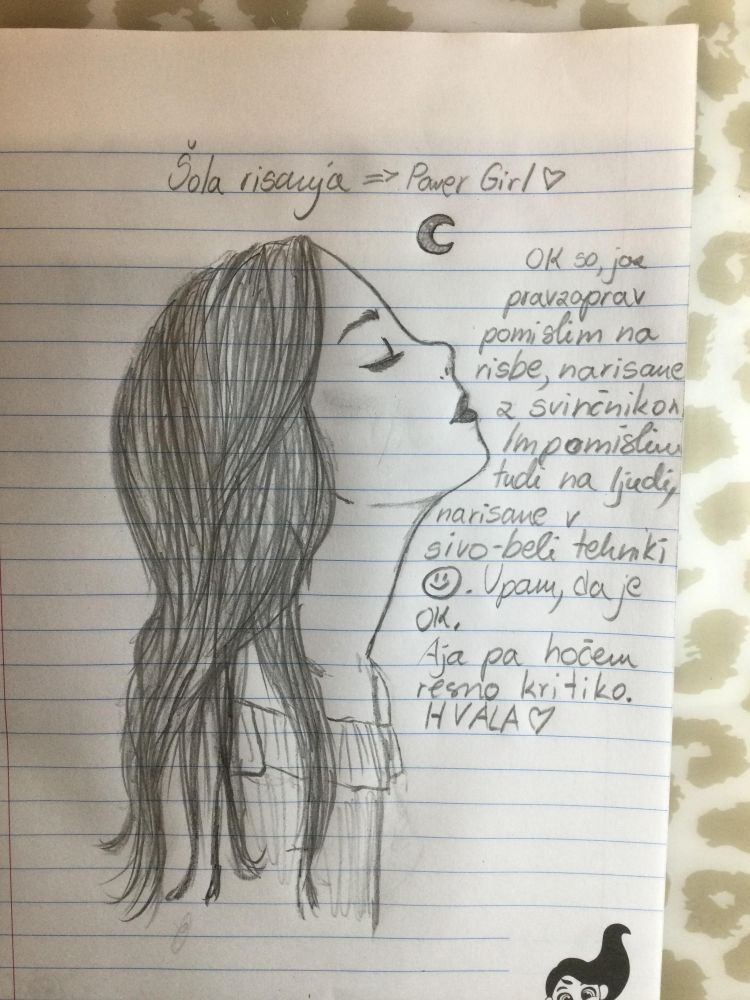 Šola risanja => Power Girl ♡
OK so, jaz
pravzaprav
pomislim na
risbe, narisane
z svinčnikom
Im pomislim
tudi na ljudi,
narisane v
sivo-beli tehniki
☺. Upam, da je
OK.
Aja pa hočem
resno kritiko.
HVALA ♡